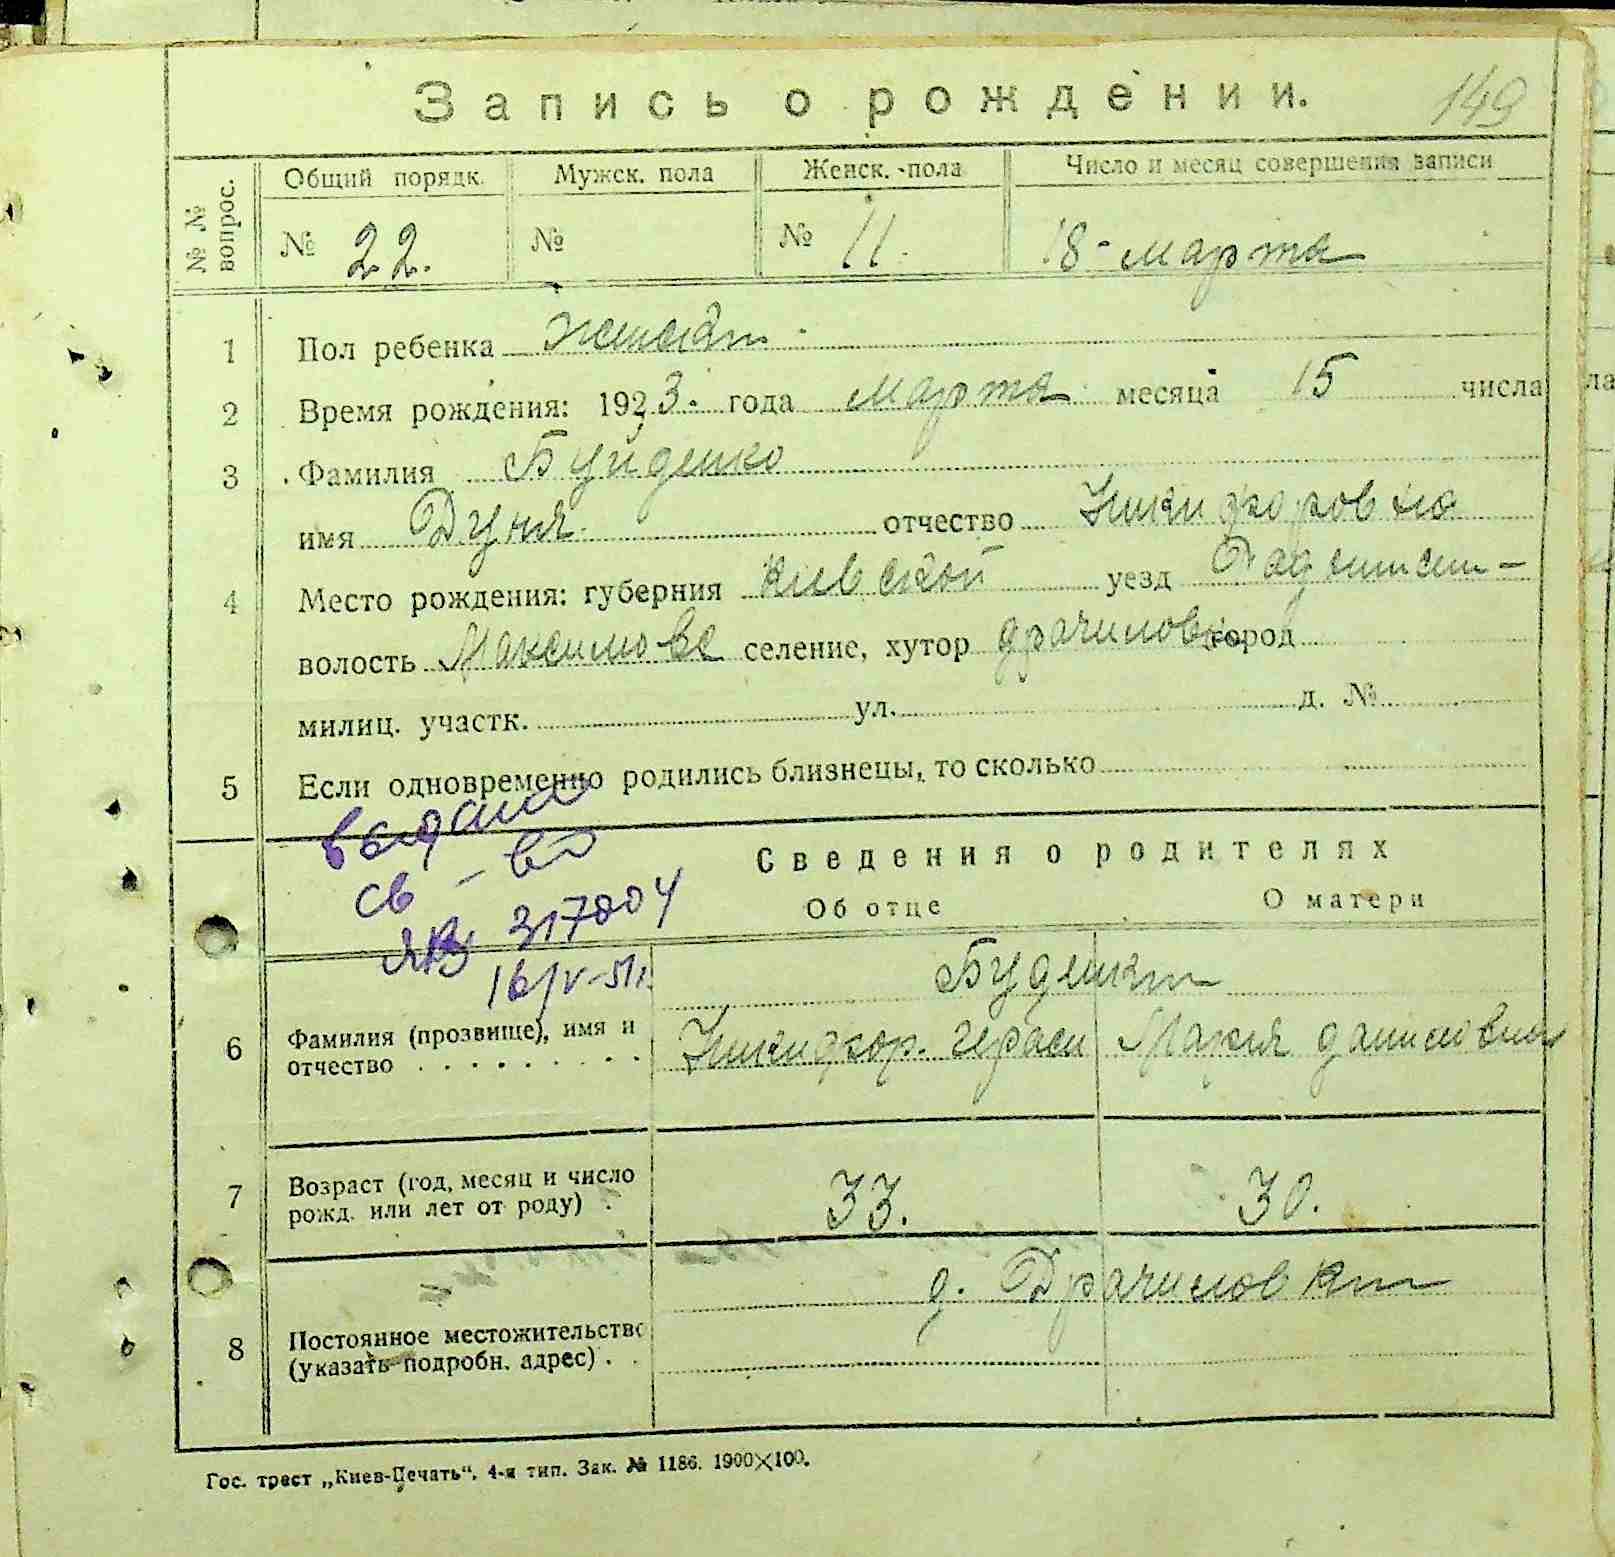 Запись о рождении. 149
№ № вопрос.
Общий порядк. Мужск. пола Женск. пола Число и месяц совершения записи
№ 22. № № 11. 18 - марта
1 Пол ребенка женский
2 Время рождения: 1923. года марта месяца 15 числа
3 Фамилия
имя Дуня отчество Никифоровна
4 Место рождения: губерния Киевской уезд
волость селение, хутор город
милиц. участк. ул. д. №
5 Если одновременно родились близнецы, то сколько
выдано
св - во
ЯВ 317804
16/V-51г.
Сведения о родителях
Об отце О матери
6 Фамилия (прозвище), имя и отчество
Никифор. Гераси Мария Даниловна
7 Возраст (год, месяц и число рожд. или лет от роду) 33. 30.
д.
8 Постоянное местожительство (указать подробн. адрес)
Гос. трест „Киев-Печать“, 4-я тип. Зак. № 1186. 1900×100.